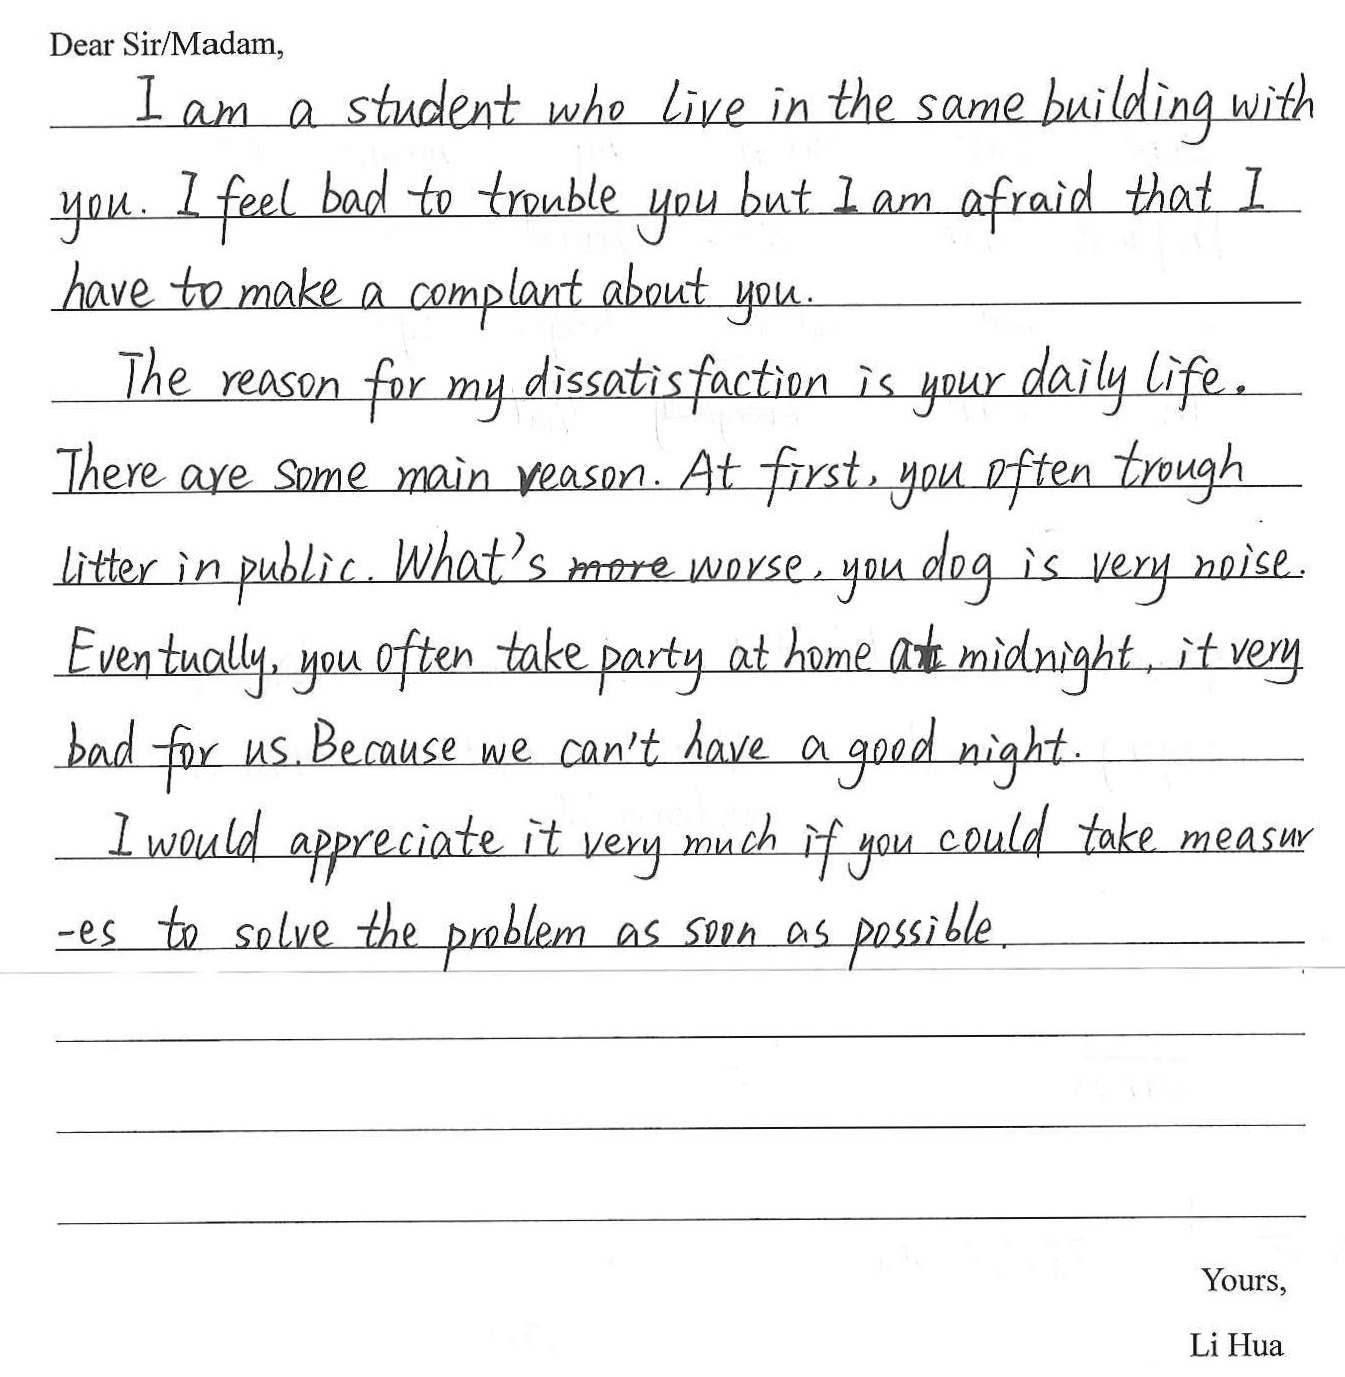 Dear Sir/Madam,
I am a student who live in the same building with
you. I feel bad to trouble you but I am afraid that I
have to make a complant about you.
The reason for my dissatisfaction is your daily life.
There are some main reason. At first, you often trough
litter in public. What's more worse, you dog is very noise.
Eventually, you often take party at home at midnight, it very
bad for us. Because we can't have a good night.
I would appreciate it very much if you could take measur
-es to solve the problem as soon as possible.
Yours,
Li Hua